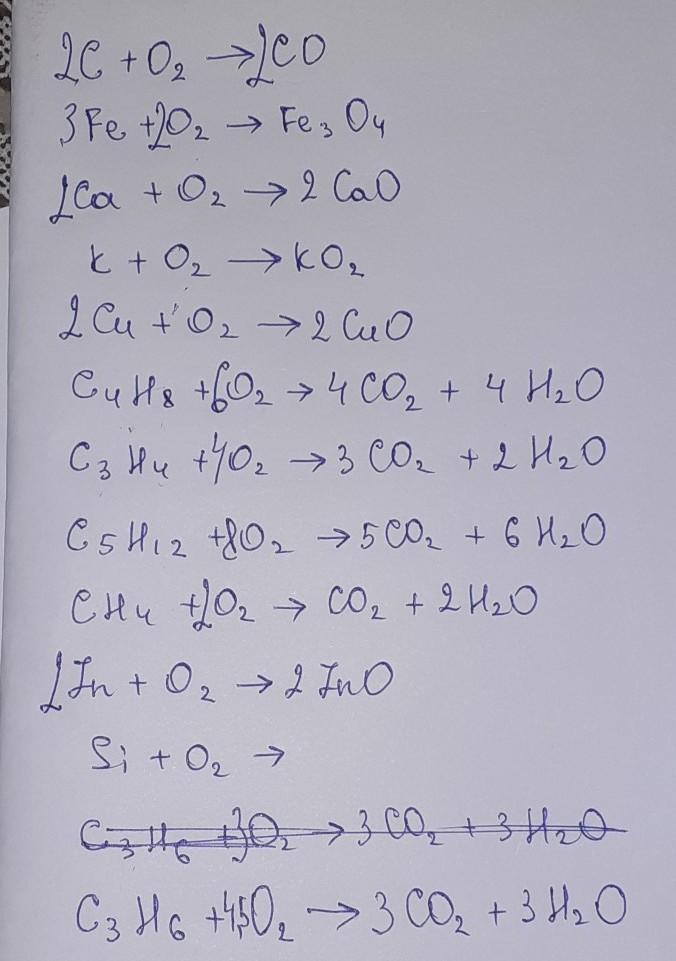 2C + O₂ → 2CO
3Fe + 2O₂ → Fe₃O₄
2Ca + O₂ → 2CaO
K + O₂ → KO₂
2Cu + O₂ → 2CuO
C₄H₈ + 6O₂ → 4CO₂ + 4H₂O
C₃H₄ + 4O₂ → 3CO₂ + 2H₂O
C₅H₁₂ + 8O₂ → 5CO₂ + 6H₂O
CH₄ + 2O₂ → CO₂ + 2H₂O
2Zn + O₂ → 2ZnO
Si + O₂ →
C₃H₆ + 3O₂ → 3CO₂ + 3H₂O
C₃H₆ + 4,5O₂ → 3CO₂ + 3H₂O